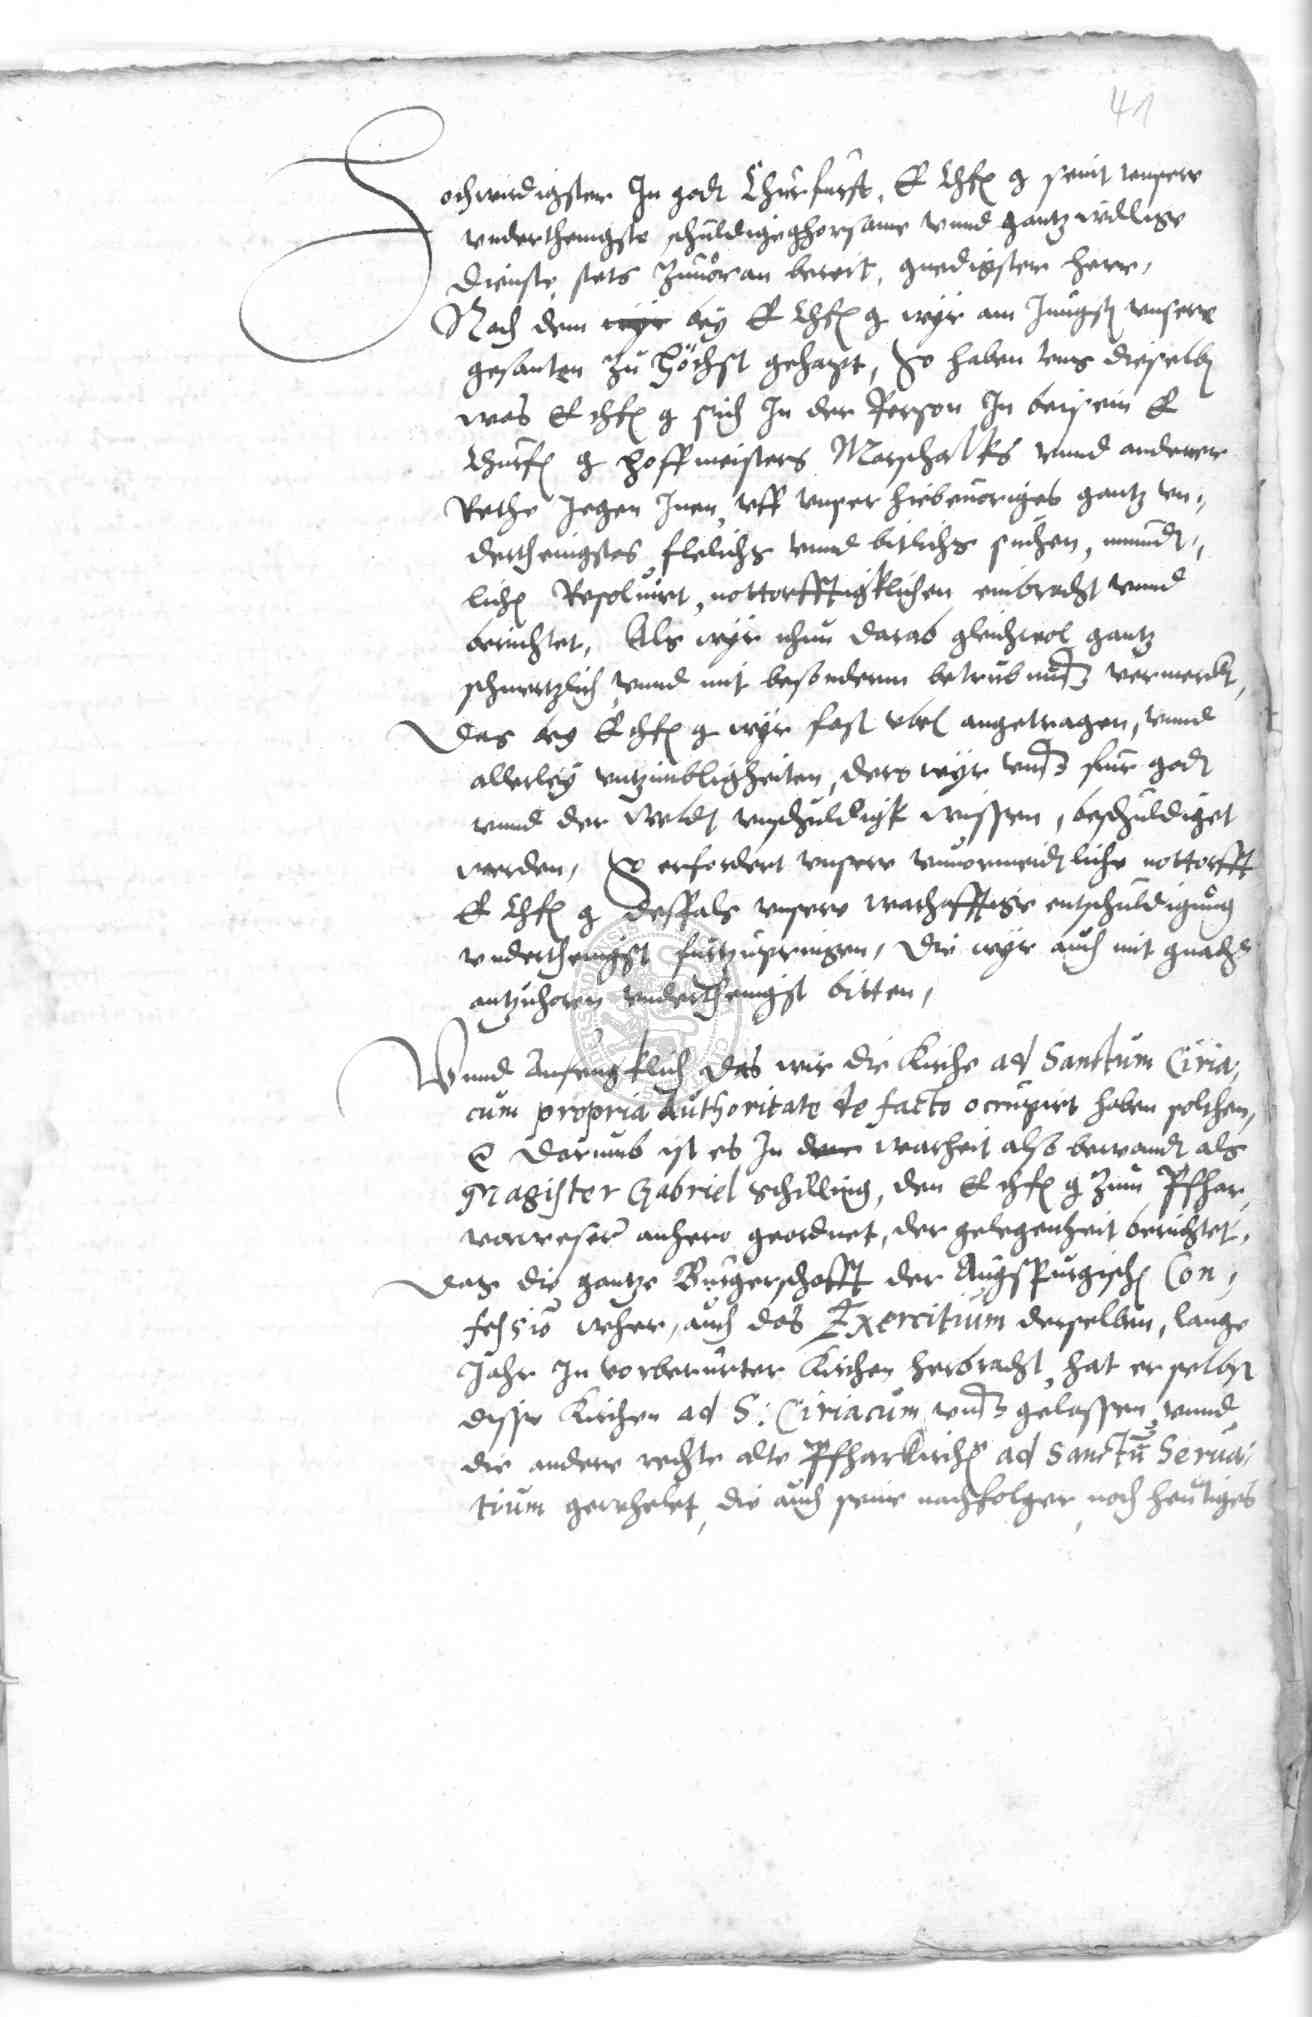 41
Hochwirdigster In godt Churfurst, E Chf g seint vnsere
vnderthenigste schuldige ghorsame vnnd gantzwillige
dienste stets zuuoran bereit, gnedigster herr,
Nach dem wyr bey E Chf g wyr am Jungst vnsere
gesanten zu Höchst gehapt, So haben vns dieselb
was E chf g sich In der Person In beisein E
Churf g hoffmeisters Marschalks vnnd anderer
Rethe gegen Inen, vff vnser hiebeuoriges gantz vn,
derthenigstes flelichs vnnd bitlichs suchen, mundt,
lich Resoluirt, nottorfftigklichen einbracht vnnd
berichtet, Als wyr nhun darab gleichwol gantz
schmertzlich, vnnd mit besonderm betrubnuß vermerckt,
Das bey E chf g wyr fast vbel angetragen, vnnd
allerley vntzimbligheiten, ders wyr vnß fur godt
vnnd der weldt vnschuldigk wissen, beschuldiget
werden, So erfordert vnsere vnuormeidtliche nottorfft
E Chf g desfals vnsere warhafftige entschuldigung
vnderthenigst furtzupringen, Die wyr auch mit gnads
antzuhoren vnderthenigst bitten,
Vnnd Anfengklich Das wir die Kirche ad Sanctum Ciria,
cum propria Authoritate de facto occupirt haben solthen,
Darumb ist es In der warheit also bewandt als
Magister Gabriel Schilling, den E chf g zum Pfhar,
vorweser anhero geordnet, der gelegenheit berichtet,
Das die gantze Burgerschafft der Augspurgisch Con,
fession wher, auch das Exercitium derselben, lange
Jahr In vorberurter Kirchen herbracht, hat er selbst
disse Kirchen ad S: Ciriacum vnß gelassen, vnnd
die andere rechte alte Pfharkirch ad Sanctū Serua,
tium gewhelet, die auch seine nachfolger, noch heutiges